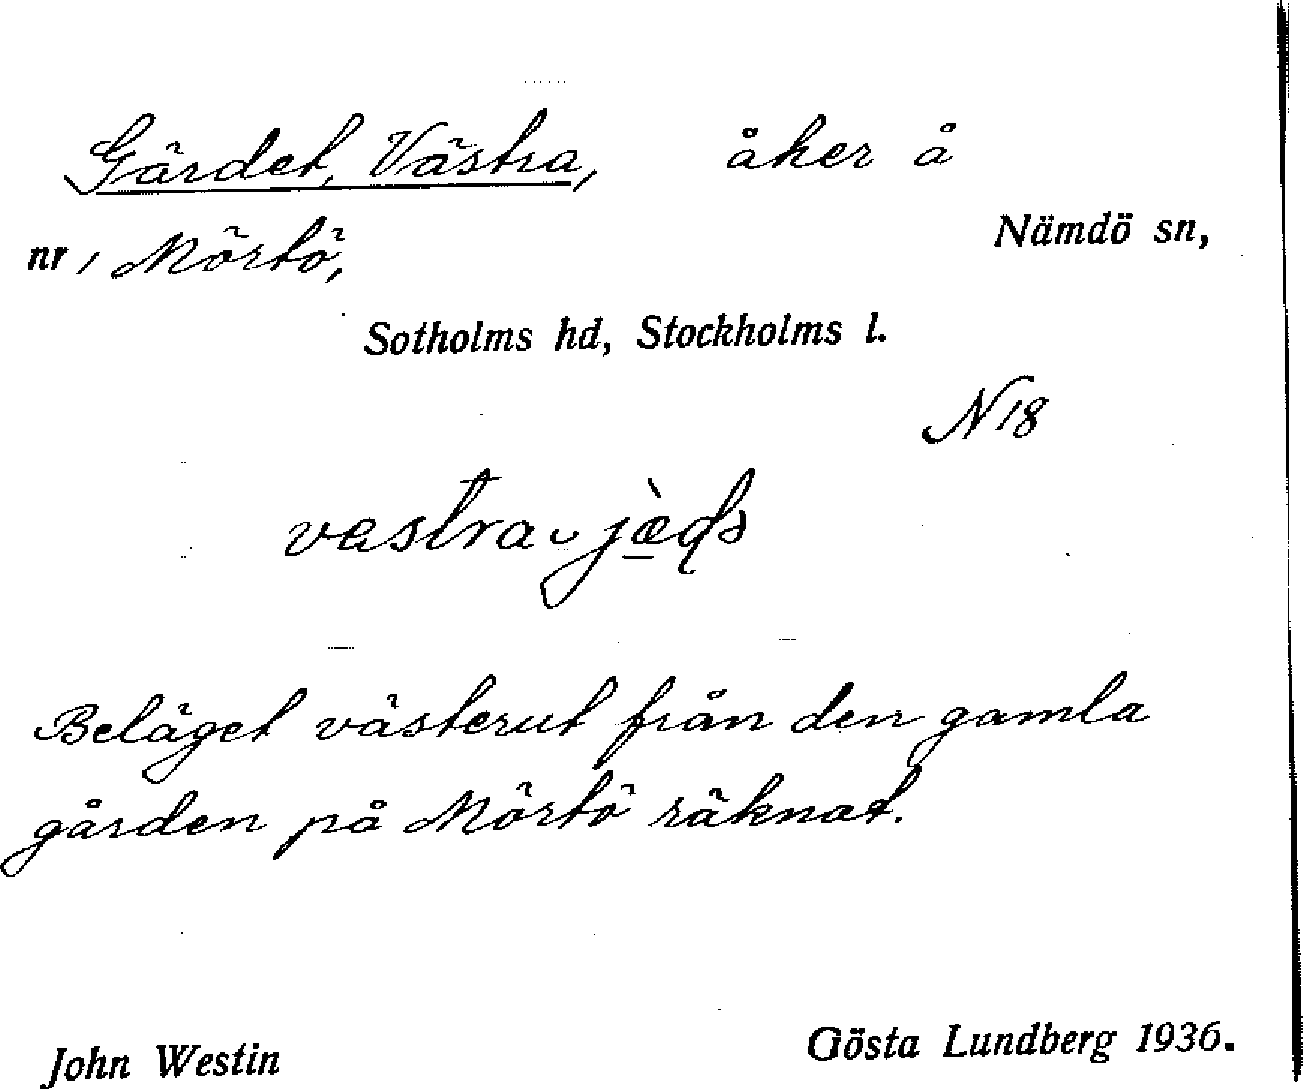 Gärdet, Västra, åker å
nr 1 Mörtö, Nämdö sn,
Sotholms hd, Stockholms l.
N 18
Beläget västerut från den gamla
gården på Mörtö räknat.
John Westin Gösta Lundberg 1936.